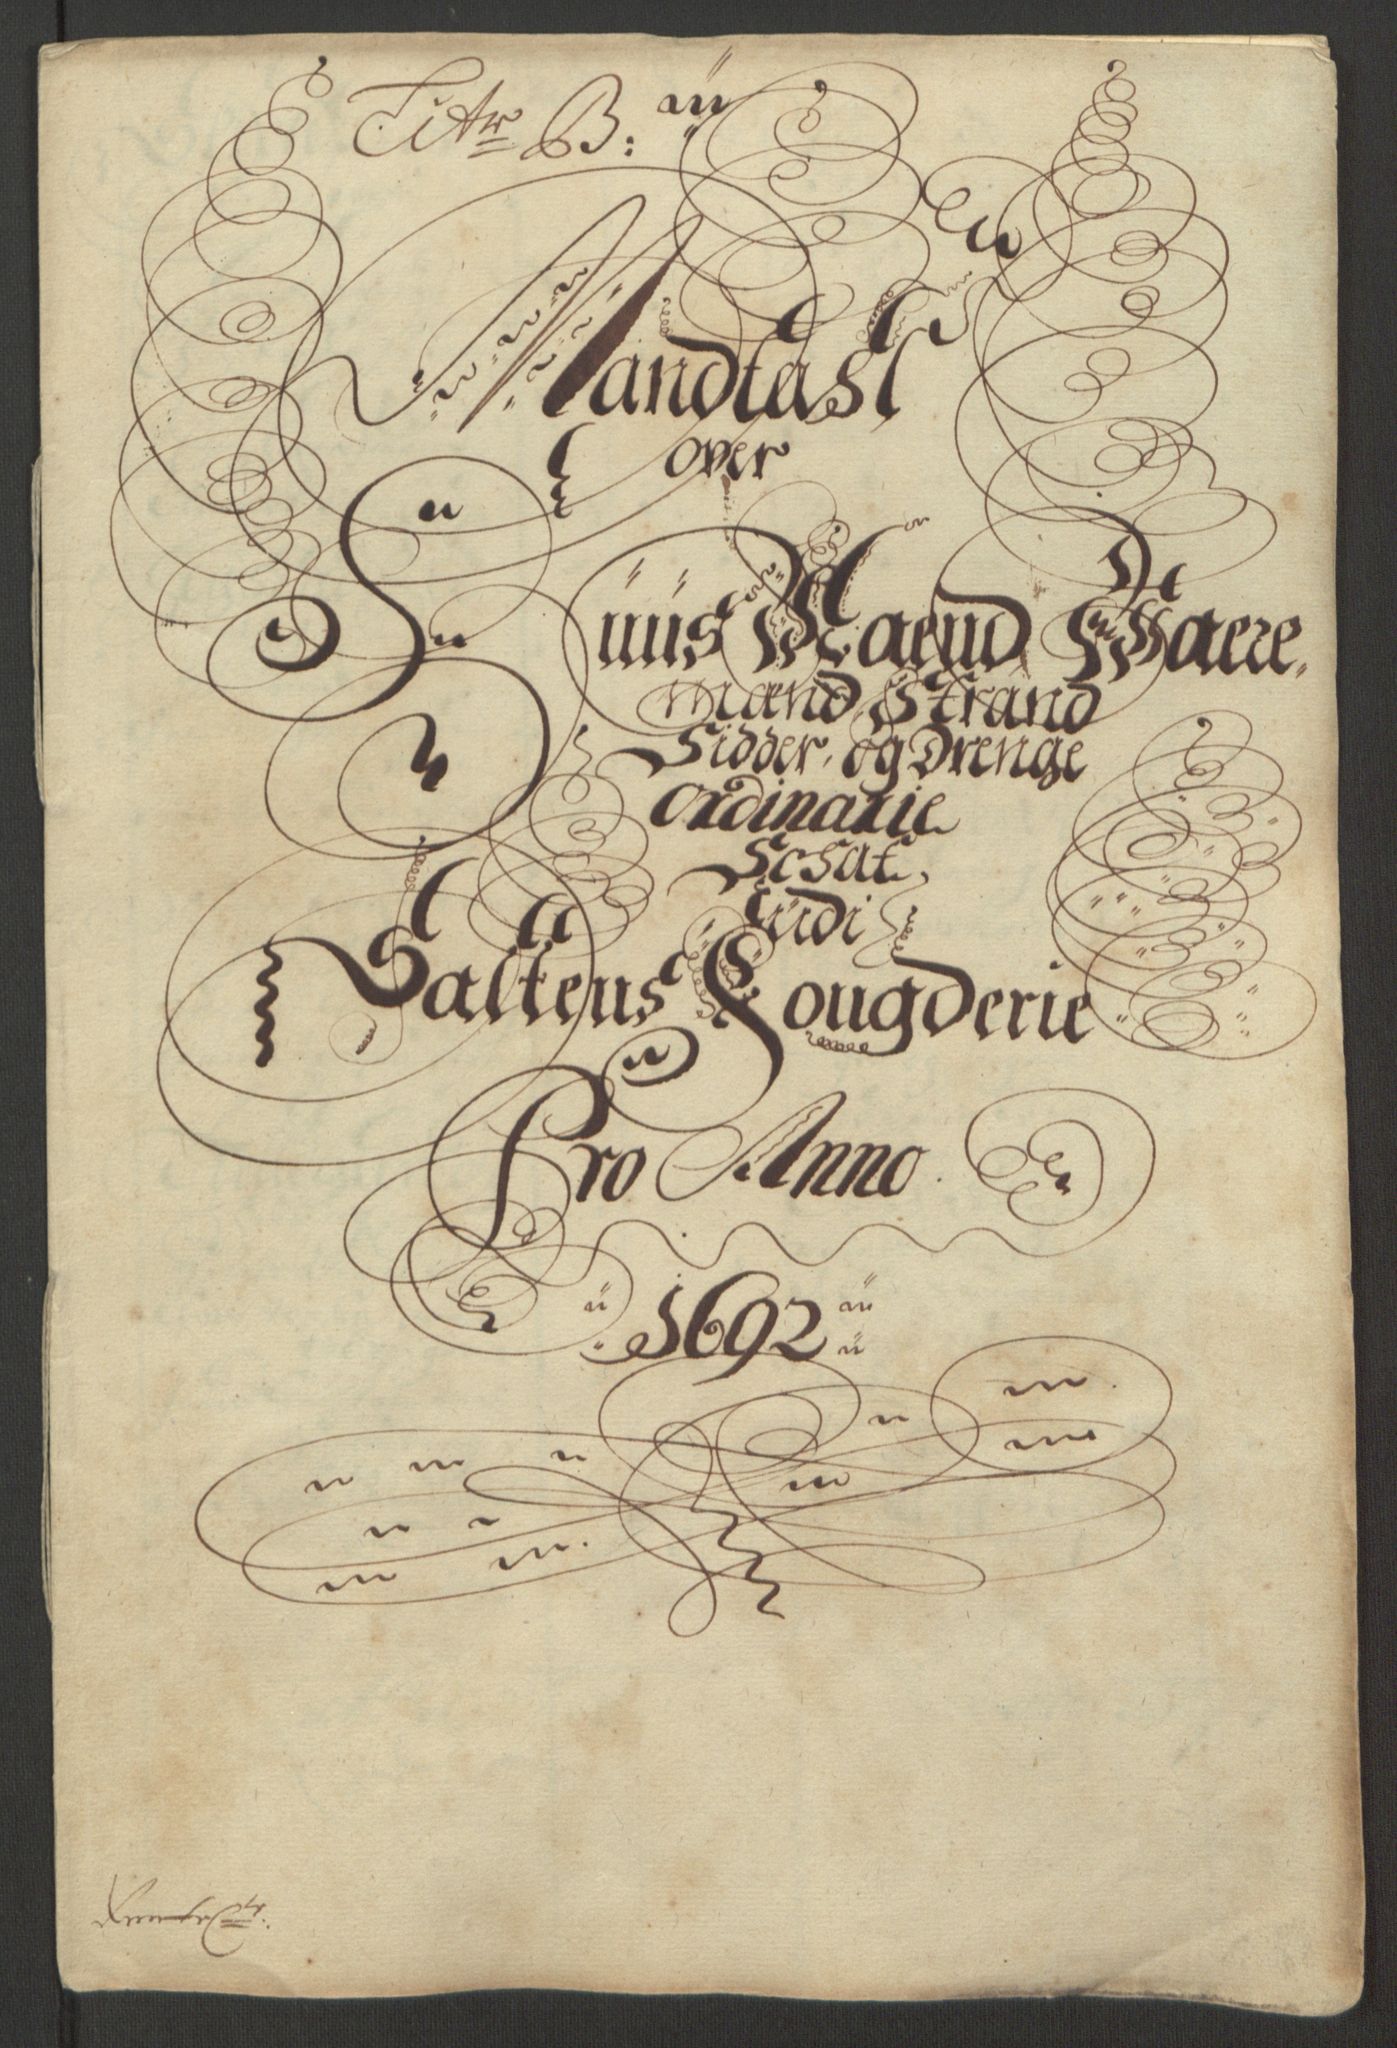 Litr B:
Mandtall
over
Huus Maend Waere
maend Strand
Sidder, og Drenge
Ordinarie
Schat
Udi
Saltens Fougderie
Pro Anno
1692